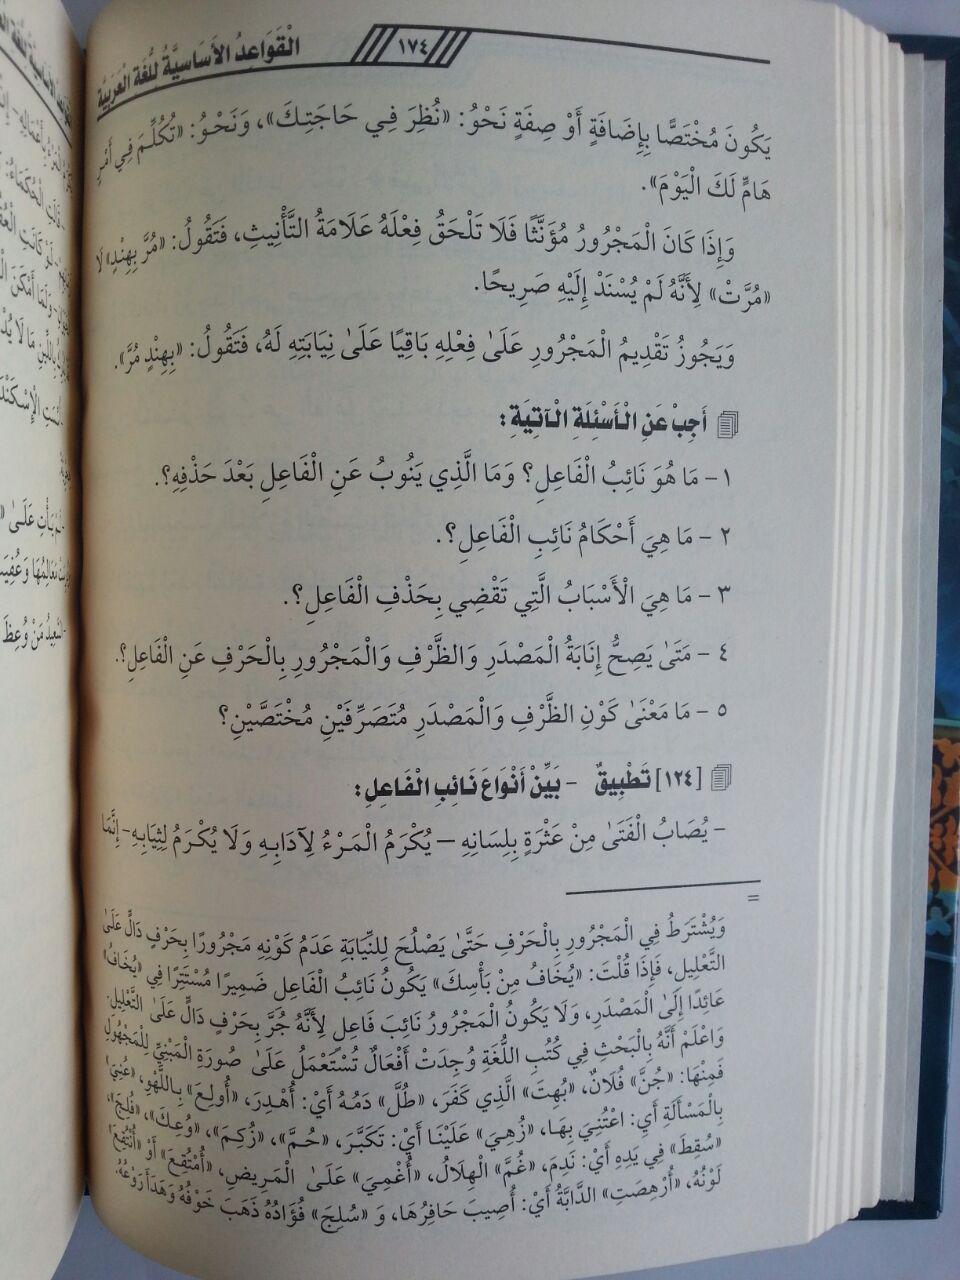 ١٧٤ الْقَوَاعِدُ الأَسَاسِيَّةُ لِلُّغَةِ الْعَرَبِيَّةِ
يَكُونَ مُخْتَصًّا بِإِضَافَةٍ أَوْ صِفَةٍ نَحْوُ: «نُظِرَ فِي حَاجَتِكَ»، وَنَحْوُ: «تُكُلِّمَ فِي أَمْرٍ
هَامٍّ لَكَ الْيَوْمَ».
وَإِذَا كَانَ الْمَجْرُورُ مُؤَنَّثًا فَلَا تَلْحَقُ فِعْلَهُ عَلَامَةُ التَّأْنِيثِ، فَتَقُولُ: «مُرَّ بِهِنْدٍ» لَا
«مُرَّتْ» لِأَنَّهُ لَمْ يُسْنَدْ إِلَيْهِ صَرِيحًا.
وَيَجُوزُ تَقْدِيمُ الْمَجْرُورِ عَلَىٰ فِعْلِهِ بَاقِيًا عَلَىٰ نِيَابَتِهِ لَهُ، فَتَقُولُ: «بِهِنْدٍ مُرَّ».
أَجِبْ عَنِ الْأَسْئِلَةِ الْآتِيَةِ:
١ - مَا هُوَ نَائِبُ الْفَاعِلِ؟ وَمَا الَّذِي يَنُوبُ عَنِ الْفَاعِلِ بَعْدَ حَذْفِهِ؟.
٢ - مَا هِيَ أَحْكَامُ نَائِبِ الْفَاعِلِ؟.
٣ - مَا هِيَ الْأَسْبَابُ الَّتِي تَقْضِي بِحَذْفِ الْفَاعِلِ؟.
٤ - مَتَىٰ يَصِحُّ إِنَابَةُ الْمَصْدَرِ وَالظَّرْفِ وَالْمَجْرُورِ بِالْحَرْفِ عَنِ الْفَاعِلِ؟.
٥ - مَا مَعْنَىٰ كَوْنِ الظَّرْفِ وَالْمَصْدَرِ مُتَصَرِّفَيْنِ مُخْتَصَّيْنِ؟
[١٢٤] تَطْبِيقٌ - بَيِّنْ أَنْوَاعَ نَائِبِ الْفَاعِلِ:
- يُصَابُ الْفَتَىٰ مِنْ عَثْرَةٍ بِلِسَانِهِ – يُكْرَمُ الْمَرْءُ لِآدَابِهِ وَلَا يُكْرَمُ لِثِيَابِهِ- إِنَّمَا
=
وَيُشْتَرَطُ فِي الْمَجْرُورِ بِالْحَرْفِ حَتَّىٰ يَصْلُحَ لِلنِّيَابَةِ عَدَمُ كَوْنِهِ مَجْرُورًا بِحَرْفٍ دَالٍّ عَلَىٰ
التَّعْلِيلِ، فَإِذَا قُلْتَ: «يُخَافُ مِنْ بَأْسِكَ» يَكُونُ نَائِبُ الْفَاعِلِ ضَمِيرًا مُسْتَتِرًا فِي «يُخَافُ»
عَائِدًا إِلَىٰ الْمَصْدَرِ، وَلَا يَكُونُ الْمَجْرُورُ نَائِبَ فَاعِلٍ لِأَنَّهُ جُرَّ بِحَرْفٍ دَالٍّ عَلَىٰ التَّعْلِيلِ.
وَاعْلَمْ أَنَّهُ بِالْبَحْثِ فِي كُتُبِ اللُّغَةِ وُجِدَتْ أَفْعَالٌ تُسْتَعْمَلُ عَلَىٰ صُورَةِ الْمَبْنِيِّ لِلْمَجْهُولِ
فَمِنْهَا: «جُنَّ» فُلَانٌ، «بُهِتَ» الَّذِي كَفَرَ، «طُلَّ» دَمُهُ أَيْ: أُهْدِرَ، «أُولِعَ» بِاللَّهْوِ، «عُنِيَ»
بِالْمَسْأَلَةِ أَيْ: اعْتُنِيَ بِهَا، «زُهِيَ» عَلَيْنَا أَيْ: تَكَبَّرَ، «حُمَّ»، «زُكِمَ»، «وُعِكَ»، «فُلِجَ»،
«سُقِطَ» فِي يَدِهِ أَيْ: نَدِمَ، «غُمَّ» الْهِلَالُ، «أُغْمِيَ» عَلَىٰ الْمَرِيضِ، «أُمْتُقِعَ» أَوْ «أُنْتُقِعَ»
لَوْنُهُ، «أُرْهِصَتِ» الدَّابَّةُ أَيْ: أُصِيبَ حَافِرُهَا، وَ «سُلِجَ» فُؤَادُهُ ذَهَبَ خَوْفُهُ وَهَدَأَ رَوْعُهُ.